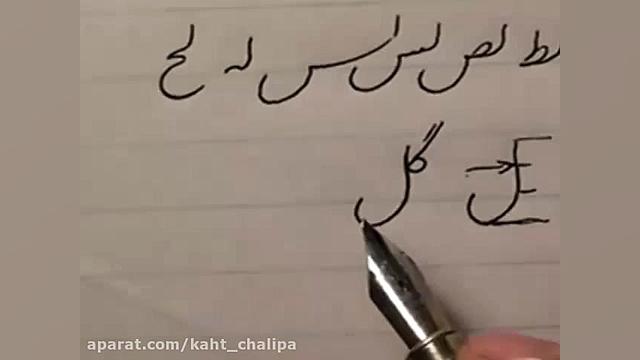 لط لص لس لس له لح
ل گل
aparat.com/kaht_chalipa